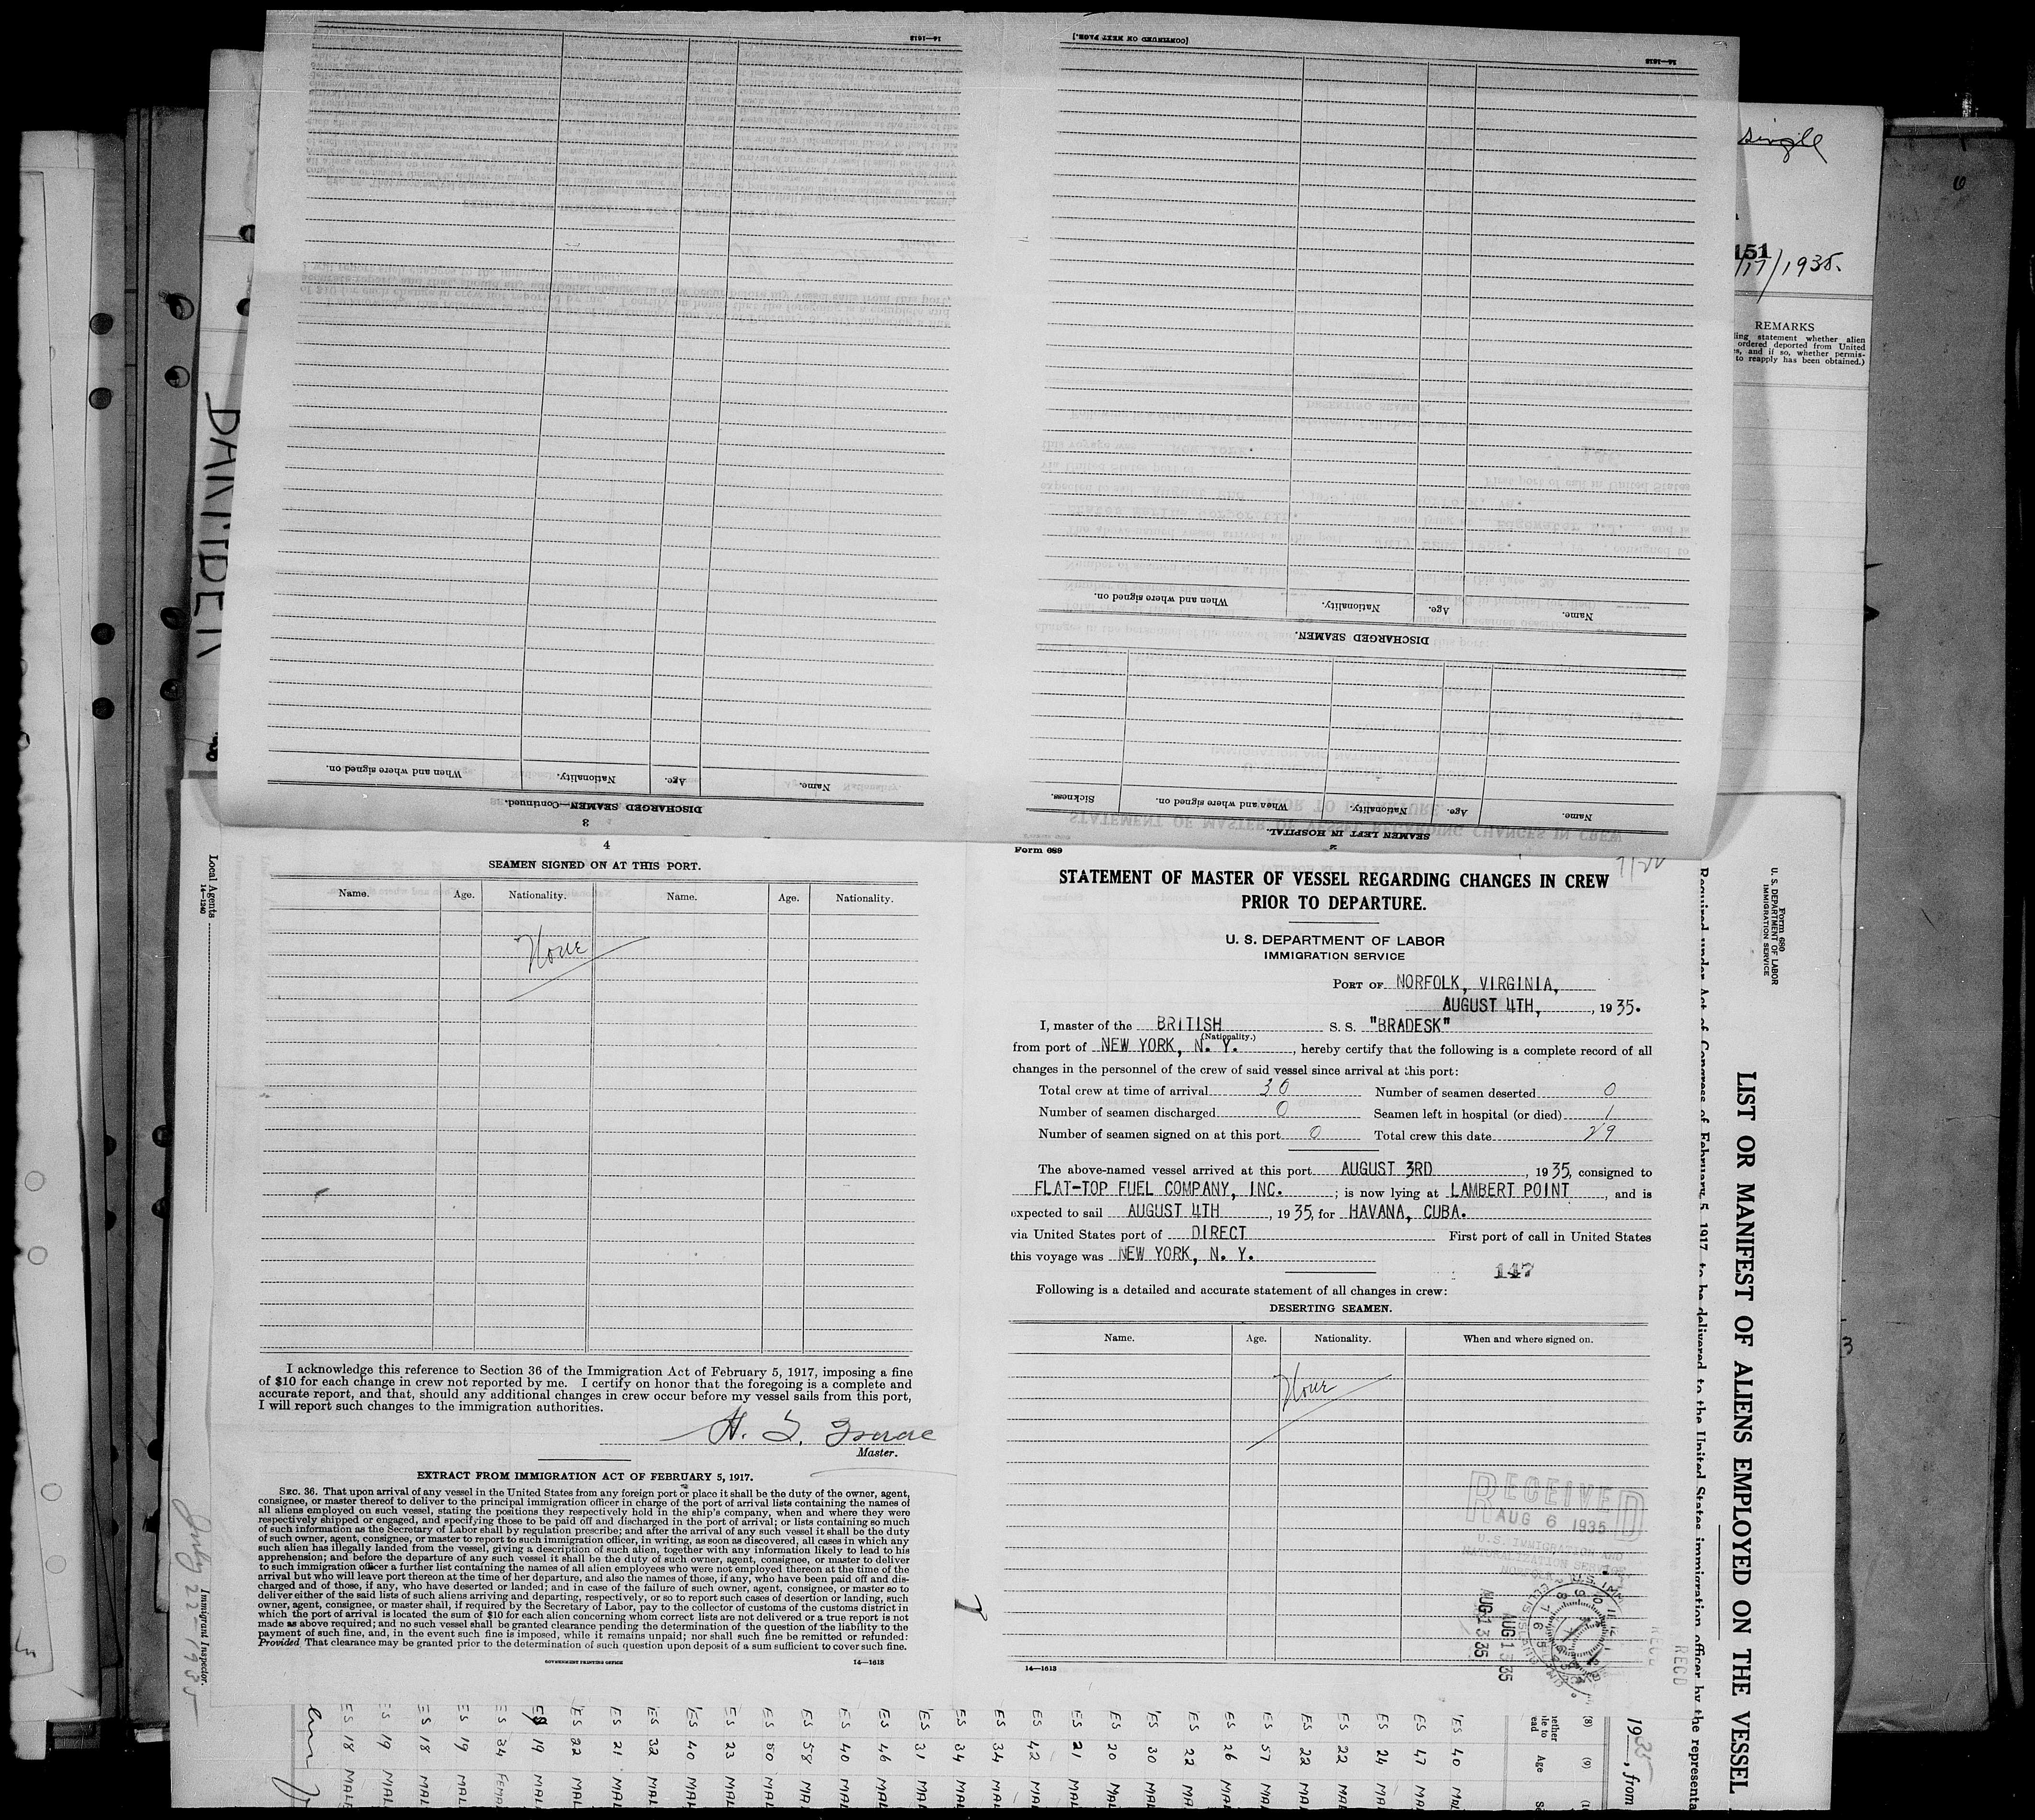 single
151
/17/1935.
REMARKS
ling statement whether alien
ordered deported from United
s, and if so, whether permis-
to reapply has been obtained.)
14—1613
[CONTINUED ON NEXT PAGE.]
14—1613
When and where signed on. Nationality. Age. Name.
DISCHARGED SEAMEN—Continued.
3
When and where signed on. Nationality. Age. Name.
DISCHARGED SEAMEN.
Sickness. When and where signed on. Nationality. Age. Name.
SEAMEN LEFT IN HOSPITAL.
2
4
SEAMEN SIGNED ON AT THIS PORT.
Name. Age. Nationality. Name. Age. Nationality.
None
I acknowledge this reference to Section 36 of the Immigration Act of February 5, 1917, imposing a fine
of $10 for each change in crew not reported by me. I certify on honor that the foregoing is a complete and
accurate report, and that, should any additional changes in crew occur before my vessel sails from this port,
I will report such changes to the immigration authorities.
Master.
EXTRACT FROM IMMIGRATION ACT OF FEBRUARY 5, 1917.
SEC. 36. That upon arrival of any vessel in the United States from any foreign port or place it shall be the duty of the owner, agent,
consignee, or master thereof to deliver to the principal immigration officer in charge of the port of arrival lists containing the names of
all aliens employed on such vessel, stating the positions they respectively hold in the ship's company, when and where they were
respectively shipped or engaged, and specifying those to be paid off and discharged in the port of arrival; or lists containing so much
of such information as the Secretary of Labor shall by regulation prescribe; and after the arrival of any such vessel it shall be the duty
of such owner, agent, consignee, or master to report to such immigration officer, in writing, as soon as discovered, all cases in which any
such alien has illegally landed from the vessel, giving a description of such alien, together with any information likely to lead to his
apprehension; and before the departure of any such vessel it shall be the duty of such owner, agent, consignee, or master to deliver
to such immigration officer a further list containing the names of all alien employees who were not employed thereon at the time of the
arrival but who will leave port thereon at the time of her departure, and also the names of those, if any, who have been paid off and dis-
charged and of those, if any, who have deserted or landed; and in case of the failure of such owner, agent, consignee, or master so to
deliver either of the said lists of such aliens arriving and departing, respectively, or so to report such cases of desertion or landing, such
owner, agent, consignee, or master shall, if required by the Secretary of Labor, pay to the collector of customs of the customs district in
which the port of arrival is located the sum of $10 for each alien concerning whom correct lists are not delivered or a true report is not
made as above required; and no such vessel shall be granted clearance pending the determination of the question of the liability to the
payment of such fine, and, in the event such fine is imposed, while it remains unpaid; nor shall such fine be remitted or refunded:
Provided That clearance may be granted prior to the determination of such question upon deposit of a sum sufficient to cover such fine.
GOVERNMENT PRINTING OFFICE 14—1613
Form 689
STATEMENT OF MASTER OF VESSEL REGARDING CHANGES IN CREW
PRIOR TO DEPARTURE.
U. S. DEPARTMENT OF LABOR
IMMIGRATION SERVICE
PORT OF NORFOLK, VIRGINIA,
AUGUST 4TH, , 1935.
I, master of the BRITISH S. S. "BRADESK"
(Nationality.)
from port of NEW YORK, N. Y. , hereby certify that the following is a complete record of all
changes in the personnel of the crew of said vessel since arrival at this port:
Total crew at time of arrival 30 Number of seamen deserted 0
Number of seamen discharged 0 Seamen left in hospital (or died) 1
Number of seamen signed on at this port 0 Total crew this date 29
The above-named vessel arrived at this port AUGUST 3RD , 1935, consigned to
FLAT-TOP FUEL COMPANY, INC. ; is now lying at LAMBERT POINT , and is
expected to sail AUGUST 4TH , 1935, for HAVANA, CUBA.
via United States port of DIRECT First port of call in United States
this voyage was NEW YORK, N. Y.
147
Following is a detailed and accurate statement of all changes in crew:
DESERTING SEAMEN.
Name. Age. Nationality. When and where signed on.
None
RECEIVED
AUG 6 1935
U.S. IMMIGRATION AND
NATURALIZATION SERVICE
NORFOLK
AUG 13 35
AUG 13 35
14—1613
Local Agents
14—1240
July 22-1935
Immigrant Inspector.
Form 680
U. S. DEPARTMENT OF LABOR
IMMIGRATION SERVICE
LIST OR MANIFEST OF ALIENS EMPLOYED ON THE VESSEL
Required under Act of Congress of February 5, 1917, to be delivered to the United States immigration officer by the representa
RECD
1935, from
(8) (9)
Age
ES 40 MAL
ES 47 MAL
ES 24 MAL
ES 22 MAL
ES 22 MAL
ES 57 MAL
ES 26 MAL
ES 22 MAL
ES 30 MAL
ES 20 MAL
ES 21 MAL
ES 42 MAL
ES 34 MAL
ES 34 MAL
ES 31 MAL
ES 46 MAL
ES 40 MAL
ES 58 MAL
ES 50 MAL
ES 23 MAL
ES 40 MAL
ES 32 MAL
ES 21 MAL
ES 22 MAL
ES 19 MAL
ES 34 FEMA
ES 19 MAL
ES 18 MAL
ES 19 MAL
ES 18 MALE